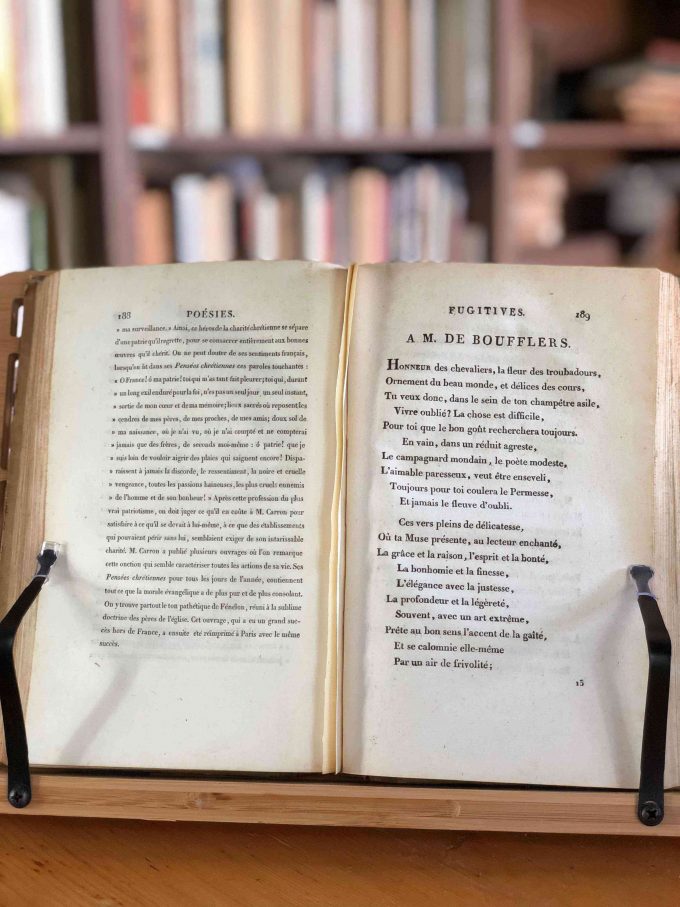 188 POÉSIES.
» ma surveillance. » Ainsi, ce héros de la charité chrétienne se sépare
d'une patrie qu'il regrette, pour se consacrer entièrement aux bonnes
œuvres qu'il chérit. On ne peut douter de ses sentiments français,
lorsqu'on lit dans ses Pensées chrétiennes ces paroles touchantes :
« O France! ô ma patrie! toi qui m'as tant fait pleurer; toi qui, durant
» un long exil enduré pour la foi, n'es pas un seul jour un seul instant,
» sortie de mon cœur et de ma mémoire; lieux sacrés où reposent les
» cendres de mes pères, de mes proches, de mes amis; doux sol de
» ma naissance, où je n'ai vu, où je n'ai compté et ne compterai
» jamais que des frères, de seconds moi-même : ô patrie! que je
» suis loin de vouloir aigrir des plaies qui saignent encore! Dispa-
» raissent à jamais la discorde, le ressentiment, la noire et cruelle
» vengeance, toutes les passions haineuses, les plus cruels ennemis
» de l'homme et de son bonheur! » Après cette profession du plus
vrai patriotisme, on doit juger ce qu'il en coûte à M. Carron pour
satisfaire à ce qu'il se devait à lui-même, à ce que des établissements
qui pouvaient périr sans lui, semblaient exiger de son intarissable
charité. M. Carron a publié plusieurs ouvrages où l'on remarque
cette onction qui semble caractériser toutes les actions de sa vie. Ses
Pensées chrétiennes pour tous les jours de l'année, contiennent
tout ce que la morale évangélique a de plus pur et de plus consolant.
On y trouve partout le ton pathétique de Fénélon, réuni à la sublime
doctrine des pères de l'église. Cet ouvrage, qui a eu un grand suc-
cès hors de France, a ensuite été réimprimé à Paris avec le même
succès.
FUGITIVES. 189
A M. DE BOUFFLERS.
HONNEUR des chevaliers, la fleur des troubadours,
Ornement du beau monde, et délices des cours,
Tu veux donc, dans le sein de ton champêtre asile,
Vivre oublié? La chose est difficile,
Pour toi que le bon goût recherchera toujours.
En vain, dans un réduit agreste,
Le campagnard mondain, le poète modeste,
L'aimable paresseux, veut être enseveli,
Toujours pour toi coulera le Permesse,
Et jamais le fleuve d'oubli.
Ces vers pleins de délicatesse,
Où ta Muse présente, au lecteur enchanté,
La grâce et la raison, l'esprit et la bonté,
La bonhomie et la finesse,
L'élégance avec la justesse,
La profondeur et la légèreté,
Souvent, avec un art extrême,
Prête au bon sens l'accent de la gaîté,
Et se calomnie elle-même
Par un air de frivolité;
15